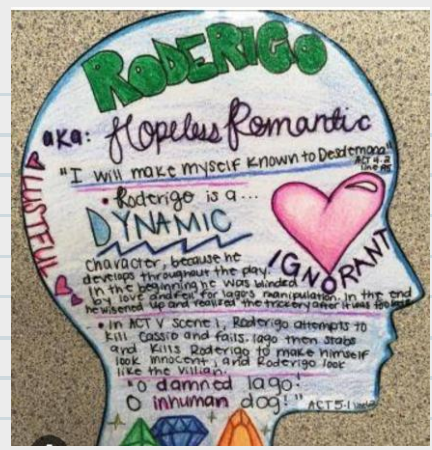 RODERIGO
aka: Hopeless Romantic
"I will make myself known to Desdemona"
ACT 4.2
• Roderigo is a...
DYNAMIC
LUSTFUL
IGNORANT
character, because he
develops throughout the play.
In the beginning he was blinded
by love and fell for Iago's manipulation. In the end
he wisened up and realized the trickery after it was too late
• In ACT V scene 1, Roderigo attempts to
kill Cassio and fails. Iago then stabs
and kills Roderigo to make himself
look innocent, and Roderigo look
like the villian.
"O damned Iago!
O inhuman dog!" ACT 5.1